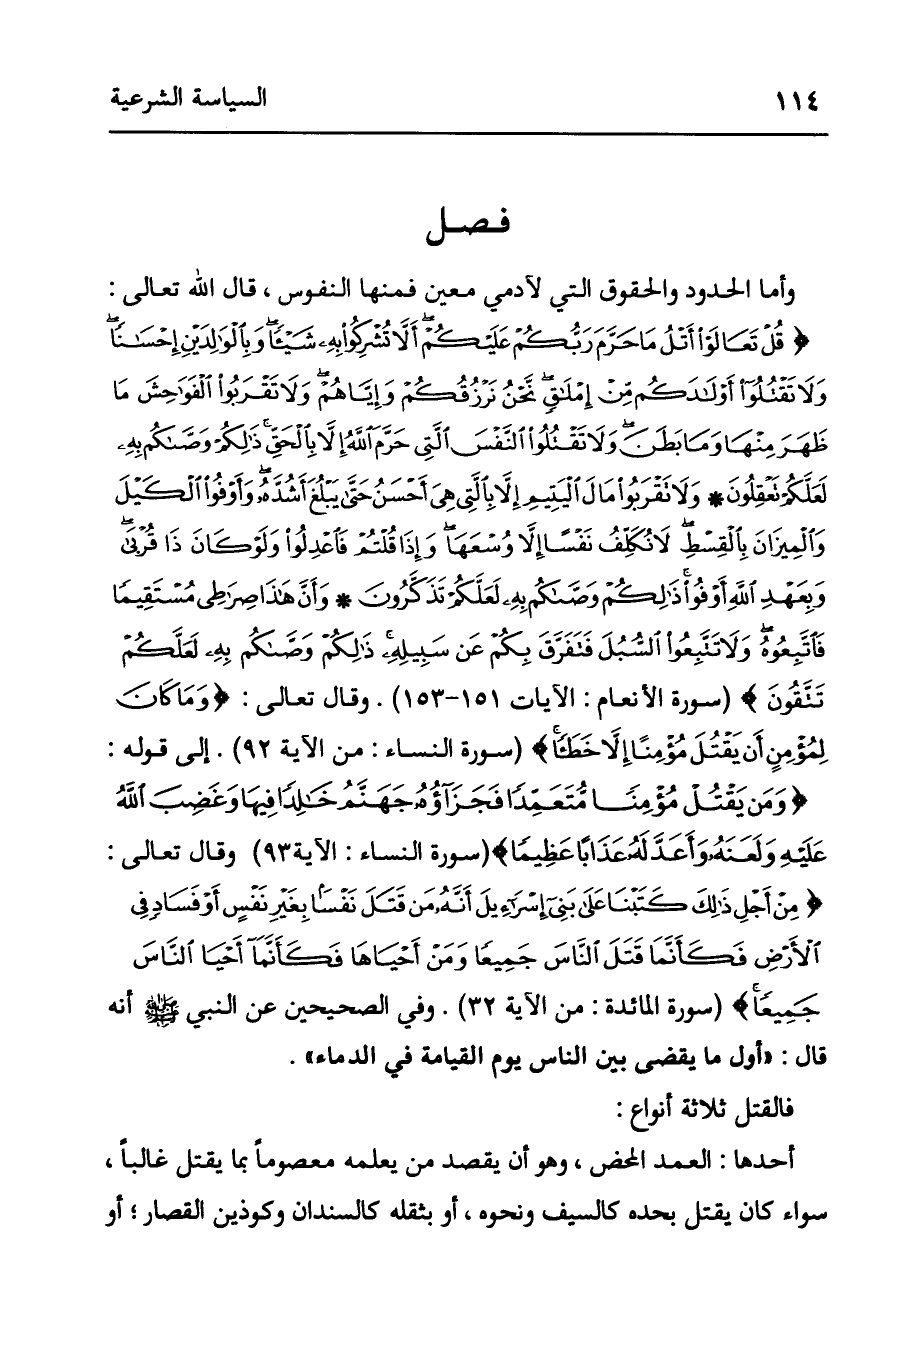 ١١٤ السياسة الشرعية
فـصـل
وأما الحدود والحقوق التي لآدمي معين فمنها النفوس ، قال الله تعالى :
﴿ قُلْ تَعَالَوْا۟ أَتْلُ مَا حَرَّمَ رَبُّكُمْ عَلَيْكُمْ ۖ أَلَّا تُشْرِكُوا۟ بِهِۦ شَيْـًٔا ۖ وَبِٱلْوَٰلِدَيْنِ إِحْسَـٰنًا ۖ
وَلَا تَقْتُلُوٓا۟ أَوْلَـٰدَكُم مِّنْ إِمْلَـٰقٍ ۖ نَّحْنُ نَرْزُقُكُمْ وَإِيَّاهُمْ ۖ وَلَا تَقْرَبُوا۟ ٱلْفَوَٰحِشَ مَا
ظَهَرَ مِنْهَا وَمَا بَطَنَ ۖ وَلَا تَقْتُلُوا۟ ٱلنَّفْسَ ٱلَّتِى حَرَّمَ ٱللَّهُ إِلَّا بِٱلْحَقِّ ۚ ذَٰلِكُمْ وَصَّىٰكُم بِهِۦ
لَعَلَّكُمْ تَعْقِلُونَ * وَلَا تَقْرَبُوا۟ مَالَ ٱلْيَتِيمِ إِلَّا بِٱلَّتِى هِىَ أَحْسَنُ حَتَّىٰ يَبْلُغَ أَشُدَّهُۥ ۖ وَأَوْفُوا۟ ٱلْكَيْلَ
وَٱلْمِيزَانَ بِٱلْقِسْطِ ۖ لَا نُكَلِّفُ نَفْسًا إِلَّا وُسْعَهَا ۖ وَإِذَا قُلْتُمْ فَٱعْدِلُوا۟ وَلَوْ كَانَ ذَا قُرْبَىٰ ۖ
وَبِعَهْدِ ٱللَّهِ أَوْفُوا۟ ۚ ذَٰلِكُمْ وَصَّىٰكُم بِهِۦ لَعَلَّكُمْ تَذَكَّرُونَ * وَأَنَّ هَـٰذَا صِرَٰطِى مُسْتَقِيمًا
فَٱتَّبِعُوهُ ۖ وَلَا تَتَّبِعُوا۟ ٱلسُّبُلَ فَتَفَرَّقَ بِكُمْ عَن سَبِيلِهِۦ ۚ ذَٰلِكُمْ وَصَّىٰكُم بِهِۦ لَعَلَّكُمْ
تَتَّقُونَ ﴾ (سورة الأنعام : الآيات ١٥١-١٥٣) . وقال تعالى : ﴿ وَمَا كَانَ
لِمُؤْمِنٍ أَن يَقْتُلَ مُؤْمِنًا إِلَّا خَطَـًٔا ۚ ﴾ (سورة النساء : من الآية ٩٢) . إلى قوله :
﴿ وَمَن يَقْتُلْ مُؤْمِنًا مُّتَعَمِّدًا فَجَزَآؤُهُۥ جَهَنَّمُ خَـٰلِدًا فِيهَا وَغَضِبَ ٱللَّهُ
عَلَيْهِ وَلَعَنَهُۥ وَأَعَدَّ لَهُۥ عَذَابًا عَظِيمًا ﴾(سورة النساء : الآية٩٣) وقال تعالى :
﴿ مِنْ أَجْلِ ذَٰلِكَ كَتَبْنَا عَلَىٰ بَنِىٓ إِسْرَٰٓءِيلَ أَنَّهُۥ مَن قَتَلَ نَفْسًۢا بِغَيْرِ نَفْسٍ أَوْ فَسَادٍ فِى
ٱلْأَرْضِ فَكَأَنَّمَا قَتَلَ ٱلنَّاسَ جَمِيعًا وَمَنْ أَحْيَاهَا فَكَأَنَّمَآ أَحْيَا ٱلنَّاسَ
جَمِيعًا ۚ ﴾ (سورة المائدة : من الآية ٣٢) . وفي الصحيحين عن النبي ﷺ أنه
قال : «أول ما يقضى بين الناس يوم القيامة في الدماء» .
فالقتل ثلاثة أنواع :
أحدها : العمد المحض ، وهو أن يقصد من يعلمه معصوماً بما يقتل غالباً ،
سواء كان يقتل بحده كالسيف ونحوه ، أو بثقله كالسندان وكوذين القصار ؛ أو